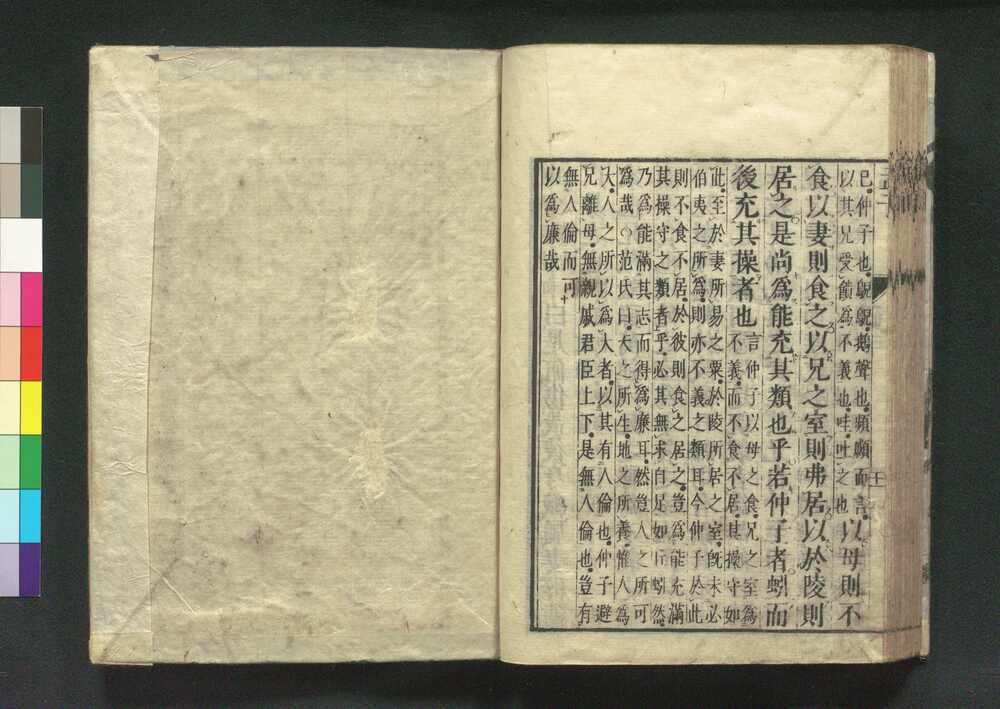 已。仲子也。鶃鶃。鵝聲也。頻顣而言。
以其兄受饋為不義也。哇。吐之也。
以母則不
食以妻則食之以兄之室則弗居以於陵則
居之是尚爲能充其類也乎若仲子者蚓而
後充其操者也
言仲子以母之食。兄之室爲
不義。而不食不居。其操守如
此。至於妻所易之粟。於陵所居之室。旣未必
伯夷之所爲。則亦不義之類耳。今仲子於此
則不食不居。於彼則食之居之。豈爲能充滿
其操守之類者乎。必其無求自足。如丘蚓然。
乃爲能滿其志而得爲廉耳。然豈人之所可
爲哉。○范氏曰。天之所生。地之所養。惟人爲
大。人之所以爲大者。以其有人倫也。仲子避
兄離母。無親戚君臣上下。是無人倫也。豈有
無人倫而可
以爲廉哉